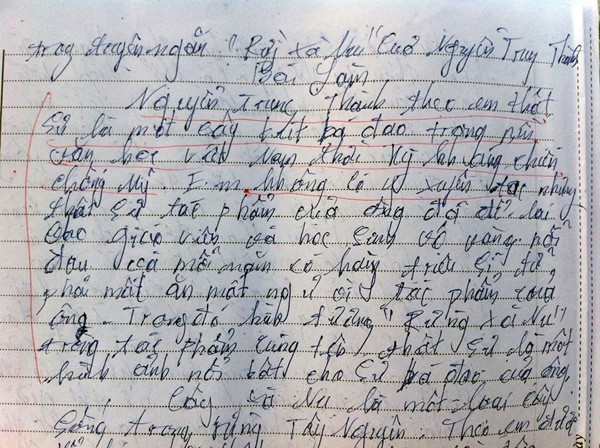 trong truyện ngắn "Rừng xà Nu" của Nguyễn Trung Thành
Bài Làm
Nguyễn Trung Thành theo em thật
sự là một cây bút bá đạo trong nền
văn học Việt Nam thời kỳ kháng chiến
chống Mỹ. Em không có ý xuyên tạc nhưng
thật sự tác phẩm của ông đã để lại
cho giáo viên và học sinh vô vàng nỗi
đau cả mỗi năm có hàng triệu sĩ tử
phải mất ăn mất ngủ vì tác phẩm của
ông. Trong đó hình tượng "Rừng xà Nu"
trong tác phẩm cùng tên thật sự là một
hình ảnh nổi bật cho sự bá đạo của ông.
Cây xà Nu là một loại cây
sống trong rừng Tây Nguyên. Theo em được